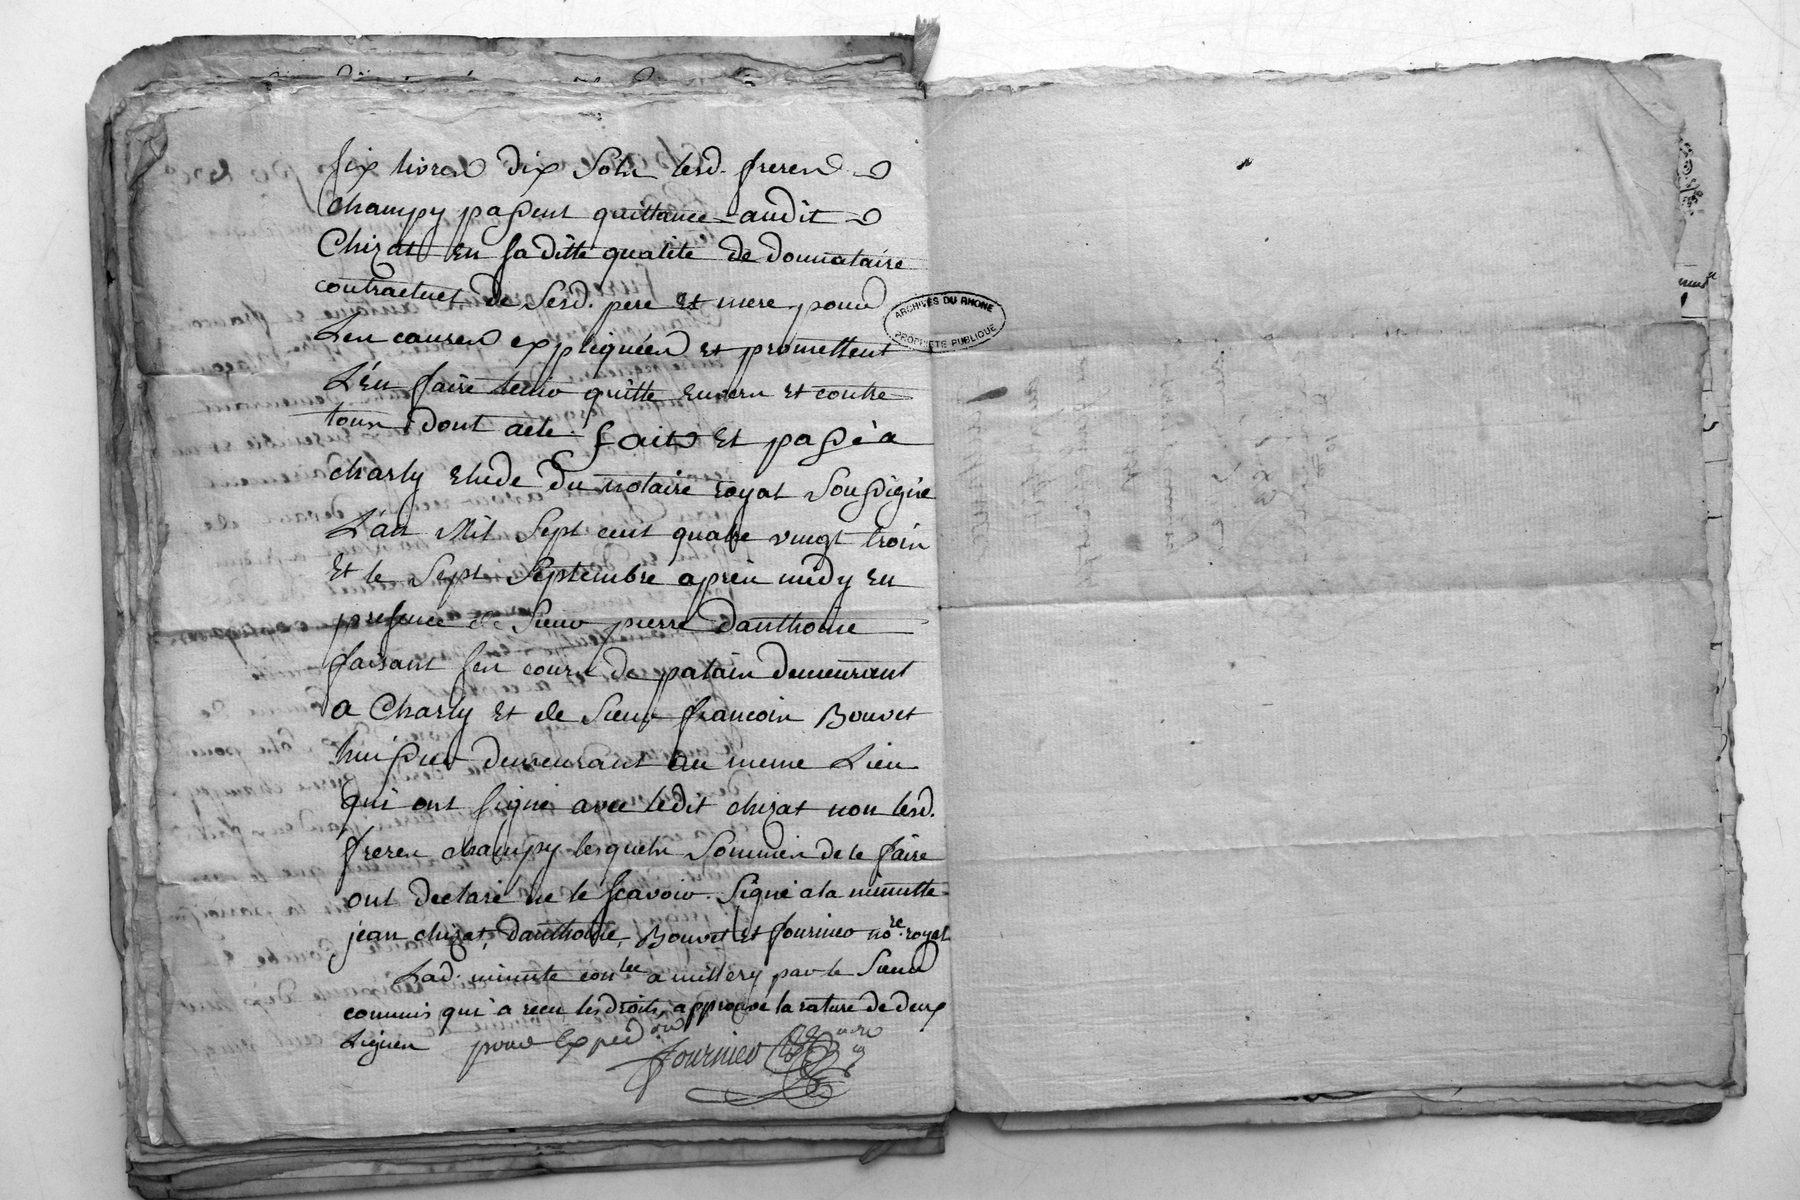 six livres dix sols lesd. freres
champy passent quittance audit
Chizat en sa ditte qualité de donnataire
contractuel de sesd. pere et mere pour
Les causes expliquées et promettent
L'en faire tenir quitte envers et contre
tous dont acte. fait et passé a
charly etude du notaire royal soussigné
L'an Mil sept cent quatre vingt trois
et le sept septembre apres midy en
presence de sieur pierre Danthoine
faisant ses cours de palais demeurant
a Charly et de sieur francois Bouvet
huissier demeurant au meme Lieu
qui ont signé avec ledit chizat non lesd.
freres champy lesquels sommés de le faire
ont declaré ne le scavoir. Signé a la minutte
jean chizat, Danthoine, Bouvet et fournier nore. royal
Lad. minute conlee a millery par le sieur
commis qui a recu les droits, approuvé la rature de deux
Lignes pour Expedon
fournier
ARCHIVES DU RHONE
PROPRIETE PUBLIQUE